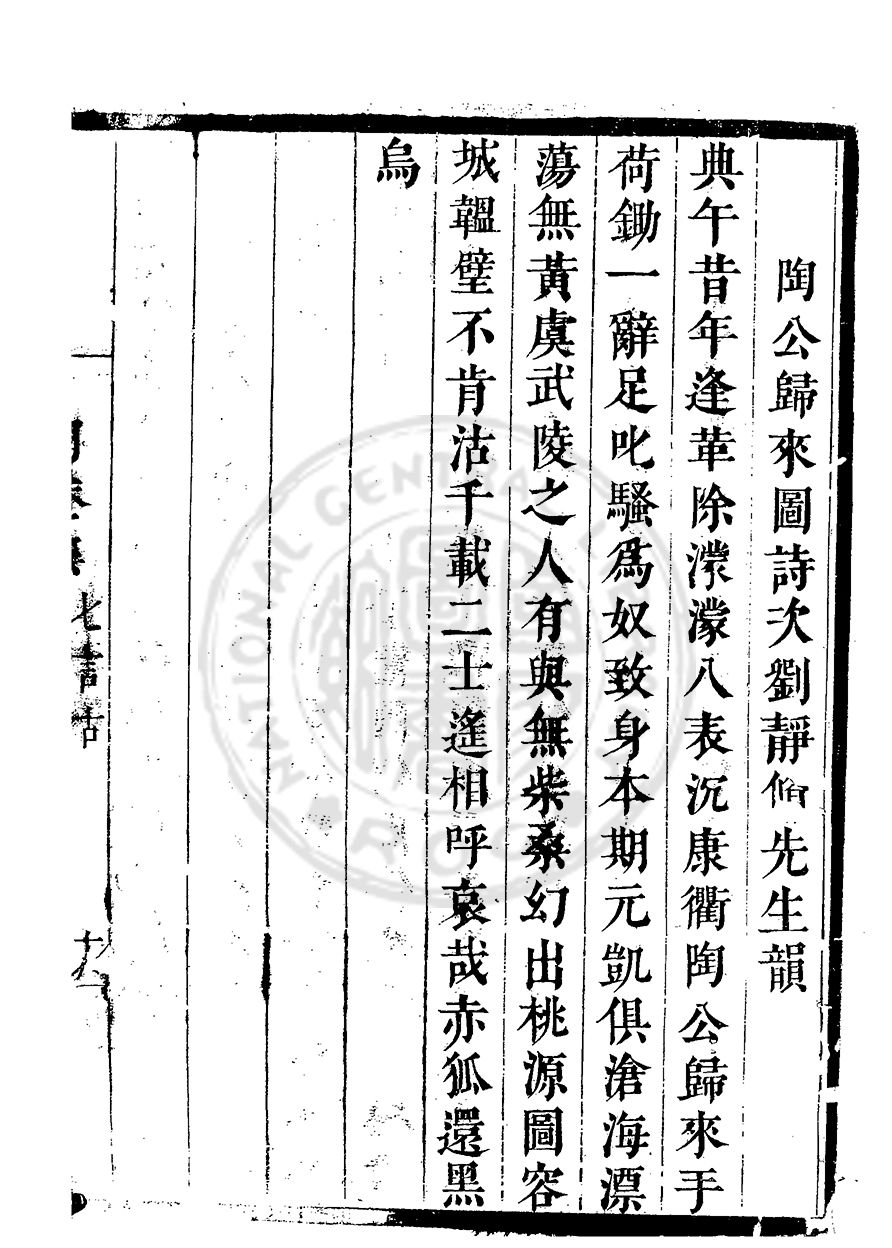 陶公歸來圖詩次劉靜脩先生韻
典午昔年逢革除濛濛八表沉康衢陶公歸來手
荷鋤一辭足叱騷爲奴致身本期元凱俱滄海漂
蕩無黃虞武陵之人有與無柴桑幻出桃源圖容
城韞璧不肯沽千載二士遙相呼哀哉赤狐還黑
烏
七言古
十八
NATIONAL CENTRAL